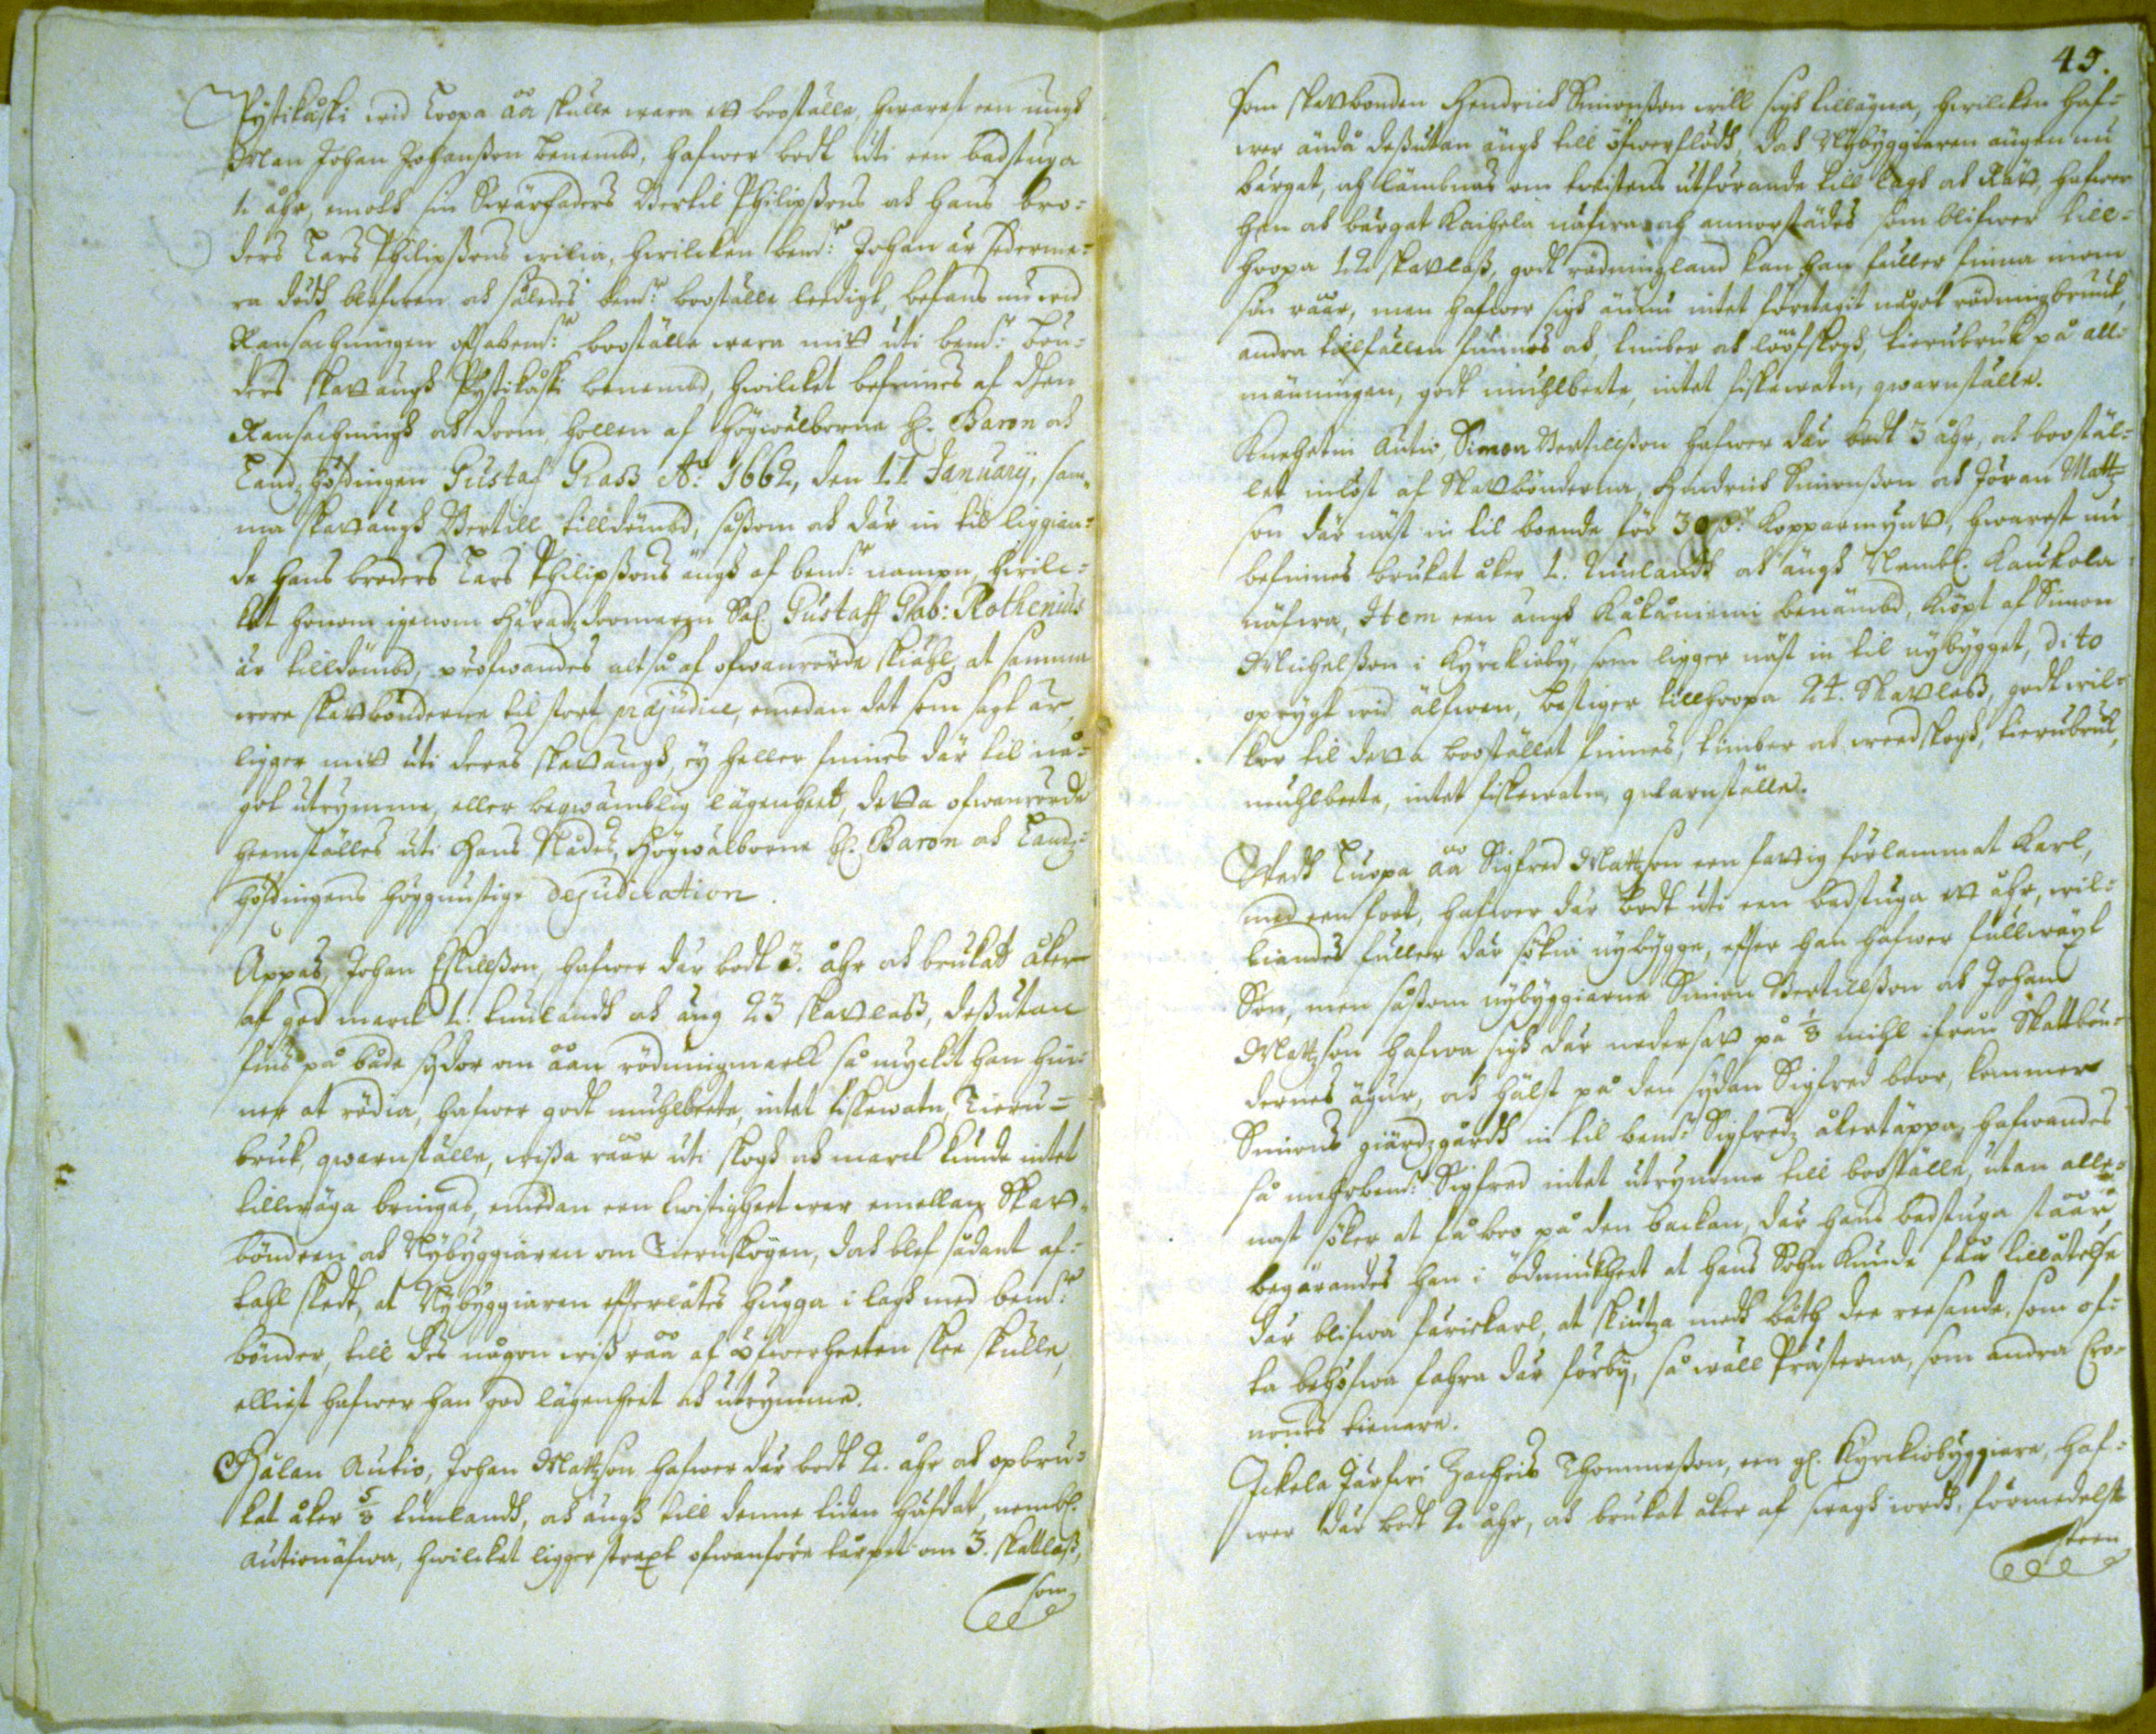 Pystikåski wid Loopa åå skulle wara ett booställe, hwarest een ungh
Man Johan Johanßon benembd, hafwer bodt uti een badstuga
1. åhr, emoth sin Swärfaders Bertil Philipßons och hans bro=
ders Lars Philipßons wilia, hwilcken bem:te Johan är sederme=
ra dödh blefwen och således bem:te booställe leedigt, befans nu wid
Ransachningen oftabem:te booställe wara mitt uti bem:te bön=
ders skattängh Pystikåski benembd, hwilcket befinnes af dhen
Ransachningh och doom, hollen af Högwälborne H. Baron och
Landzhöfdingen Gustaf Grass A:o 1662, den 11 January, sam=
ma skattängh Bertill tilldömbd, såsom och där in til liggian=
de hans broders Lars Philipßons ängh af bem:te nampn, hwilc=
ket honom igenom Häradzdoomaren Sal. Gustaff Gab: Rothenius
är tilldömbd, pröfwandes altså af ofwanrörde skiähl, at samma
wore skattbönderne til stort præjudice, emedan det som sagt är,
ligger mitt uti deras skattängh, ey heller finnes där til nå=
got utrymme, eller beqwämblig lägenheet, detta ofwanrörde
heemställes uti Hans Nådes, Högwälborne H. Baron och Landz=
höfdingens höggunstige dejudication.
Appas, Johan Eskillßon, hafwer där bodt 3. åhr och brukat åker
af god marck 1. tunlandh och äng 23 skattlaß, deßutan
fins på både sydor om åån rödningmarck så myckit han hin=
ner at rödia, hafwer godt muhlbeete, intet fiskewatn, Tieru=
bruk, qwarnställe, wißa råår uti skogh och marck kunde intet
tillwäga bringas, emedan een twistigheet war emellan Skatt=
bönderne och Nybyggiaren om Tieruskogen, doch blef sådant af=
tahl skedt, at Nybyggiaren efterlåtes hugga i lagh med bem:te
bönder, till des någon wiß råå af öfwerheeten skee skulle,
elliest hafwer han god lägenheet och utrymme.
Hålan Autio, Johan Mattzson hafwer där bodt 2. åhr och opbru=
kat åker 5/8 tunlandh, och ängh till denne tiden häfdat, nembl.
Autionäfwa, hwilcket ligger strext ofwanföre torpet om 3. skattlaß,
som
49.
som skattbonden Hendrich Simonßon will sigh tillägna, hwilcken haf=
wer ändå deßutan ängh till öfwerflödh, doch Nybyggiaren ängen nu
bärgat, och lämbnas om twistens utförande till lagh och Rätt, hafwer
han och bärgat Kaihela näfwa och annorstädes som blifwer till=
hoopa 12 skattlaß, godt rödningland kan han fuller finna inom
sin råår, men hafwer sigh ännu intet företagit något rödningbruuk,
andra tillfällen finnes och, timber och löfskogh, tierubruk på all=
männingen, godt muhlbeete, intet fiskewatn, qwarnställe.
Autio Simon Bertillßon hafwer där bodt 3 åhr, och booställ=
let inlöst af Skattbönderna, Hendrich Simonßon och Jöran Mattz=
son där näst in til boende för 30 d:r kopparmynt, hwarest nu
befinnes brukat åker 1. tunlandh och ängh Nembl. Kaukola
näfwa, Item een ängh Kåkåniemi benämbd, kiöpt af Simon
Michelßon i Kyrckioby, som ligger näst in til nybygget, dito
oprygt wid älfwen, bestiger tillhoopa 24. Skattlaß, godt wil=
kor til detta booställe finnes, timber och weedskogh, tierubruk,
muhlbeete, intet fiskewatn, qwarnställe.
Wedh Luopa åå Sigfred Mattzson een fattig förlammat Karl,
med een foot, hafwer där bodt uti een badstuga ett åhr, wil=
liandes fuller där sökia nybygge, efter han hafwer fullwäxt
Son, men såsom nybyggiarne Simon Bertillßon och Johan
Mattzson hafwa sigh där nedersatt på 1/8 mihl ifrån Skattbön=
dernes ägur, och hälst på den sydan Sigfred boor, kommer
Simons giärdzgårdh in til bem:te Sigfredz åkertäppa, hafwandes
så mehrbem:te Sigfred intet utrymme till booställe, utan alle=
nast söker at få boo på den backan, där hans badstuga ståår,
begärandes han i ödmiukheet at hans Sohn kunde fåå tillåtelse
där blifwa färiekarl, at skiutza medh båth dee reesande, som of=
ta behöfwa fahra där förby, så wäll Prästerna, som andra Cro=
nones tienare.
Ickela Järfwi Zachris Thommeßon, een gl. Kyrckiobyggiare, haf=
wer där bodt 2 åhr, och brukat åker af swagh iordh, förmedelst
steen